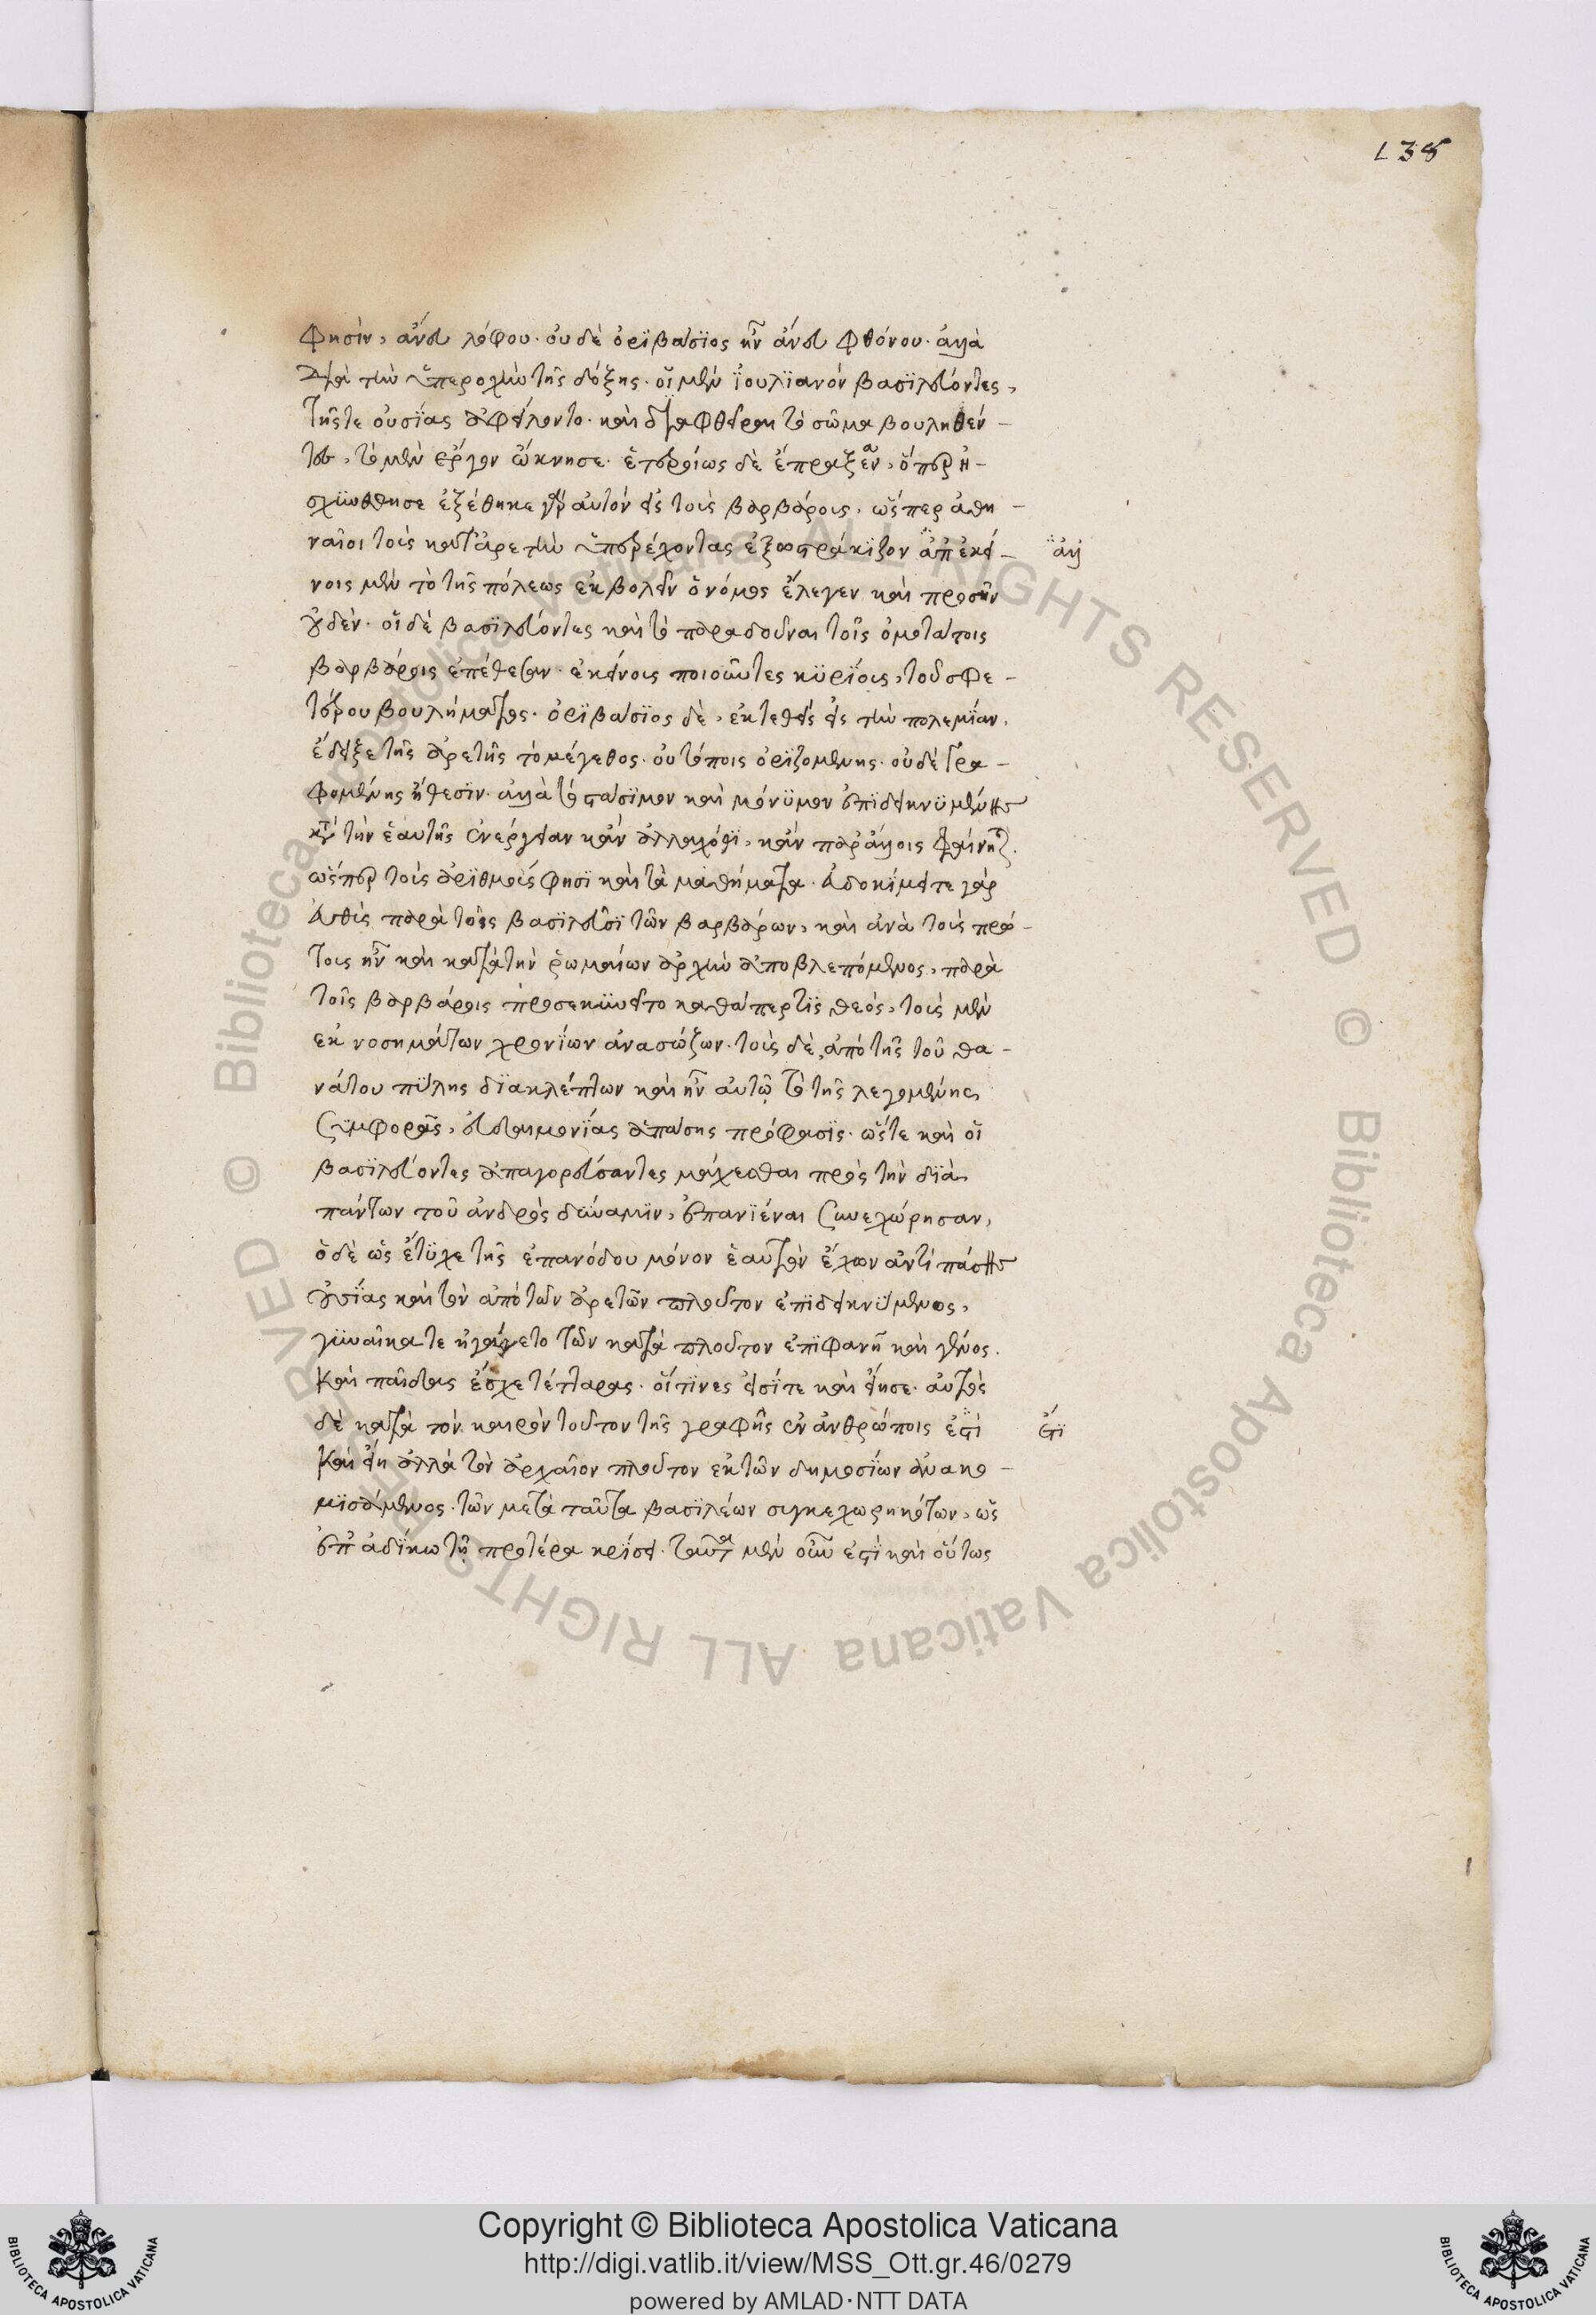 138
φησὶν, ἄνευ λόφου. οὐδὲ ὀρϊβάσϊος ἦν ἄνευ φθόνου. ἀλλὰ
διὰ τὴν ὑπεροχὴν τῆς δόξης. οἱ μὲν ἰουλϊανὸν βασϊλεύοντες,
τῆς τε οὐσίας ἀφείλοντο. καὶ διαφθεῖραι τὸ σῶμα βουληθέν-
τες, τὸ μὲν ἔργον ὤκνησε. ἑτεροίως δὲ ἔπραξεν, ὅπερ ἠ-
σχύνθησε ἐξέθηκε γὰρ αὐτὸν εἰς τοὺς βαρβάρους, ὥσπερ ἀθη-
ναῖοι τοὺς κατ' ἀρετὴν ὑπερέχοντας ἐξοστράκιζον ἀπ' ἐκεί- ἀλλ
νοις μὲν τὸ τῆς πόλεως ἐκβαλεῖν ὁ νόμος ἔλεγεν καὶ προσῆν
οὐδὲν. οἱ δὲ βασϊλεύοντες καὶ τὸ παραδοῦναι τοῖς ὠμοτάτοις
βαρβάροις ἐπέθεσαν. ἐκείνους ποιοῦντες κυρίους, τοῦ σφε-
τέρου βουλήματος. ὀρϊβάσϊος δὲ, ἐκτεθεὶς εἰς τὴν πολεμίαν,
ἔδειξε τῆς ἀρετῆς τὸ μέγεθος. οὐ τόποις ὁρϊζομένης. οὐδὲ γρα-
φομένης ἤθεσϊν. ἀλλὰ τὸ στάσϊμον καὶ μόνϊμον ἐπϊδεικνυμένης
κατὰ τὴν ἑαυτῆς ἐνέργειαν κἂν ἀλλαχόθϊ, κἂν παρ' ἄλλοις φαίνηται.
ὥσπερ τοὺς ἀρϊθμούς φησϊ καὶ τὰ μαθήματα. εὐδοκίμει τε γὰρ
εὐθὺς παρὰ τοῖς βασϊλεῦσϊ τῶν βαρβάρων, καὶ ἀνὰ τοὺς πρώ-
τους ἦν καὶ κατὰ τὴν ῥωμαίων ἀρχὴν ἀποβλεπόμενος, παρὰ
τοῖς βαρβάροις προσεκυνεῖτο καθάπερ τϊς θεός, τοὺς μὲν
ἐκ νοσημάτων χρονίων ἀνασώζων. τοὺς δὲ, ἀπὸ τῆς τοῦ θα-
νάτου πύλης δϊακλέπτων καὶ ἦν αὐτῷ τὸ τῆς λεγομένης
συμφορᾶς, εὐδαιμονίας ἁπάσης πρόφασϊς. ὥστε καὶ οἱ
βασϊλεύοντες ἀπαγορεύσαντες μάχεσθαι πρὸς τὴν δϊὰ
πάντων τοῦ ἀνδρὸς δύναμϊν, ἐπανϊέναι συνεχώρησαν,
ὁ δὲ ὡς ἔτυχε τῆς ἐπανόδου μόνον ἑαυτὸν ἔχων ἀντὶ πάσης
οὐσίας καὶ τὸν ἀπὸ τῶν ἀρετῶν πλοῦτον ἐπϊδεικνύμενος,
γυναῖκα τε ἠγάγετο τῶν κατὰ πλοῦτον ἐπϊφανῆ καὶ γένος.
καὶ παῖδας ἔσχε τέτταρας. οἵτϊνες εἰσί τε καὶ εἴησε. αὐτὸς
δὲ κατὰ τὸν καιρὸν τοῦτον τῆς γραφῆς ἐν ἀνθρώποις ἐστὶ ἔστϊ
καὶ εἴη ἀλλὰ τὸν ἀρχαῖον πλοῦτον ἐκ τῶν δημοσίων ἀνακο-
μϊσάμενος. τῶν μετὰ ταῦτα βασϊλέων συγκεχωρηκότων, ὡς
ἐπ' ἀδίκω τῇ προτέρα κρίσει. ταῦτα μὲν οὖν ἐστϊ καὶ οὕτως
Copyright © Biblioteca Apostolica Vaticana
http://digi.vatlib.it/view/MSS_Ott.gr.46/0279
powered by AMLAD·NTT DATA
BIBLIOTECA APOSTOLICA VATICANA
BIBLIOTECA APOSTOLICA VATICANA
© Biblioteca Apostolica Vaticana ALL RIGHTS RESERVED
© Biblioteca Apostolica Vaticana ALL RIGHTS RESERVED